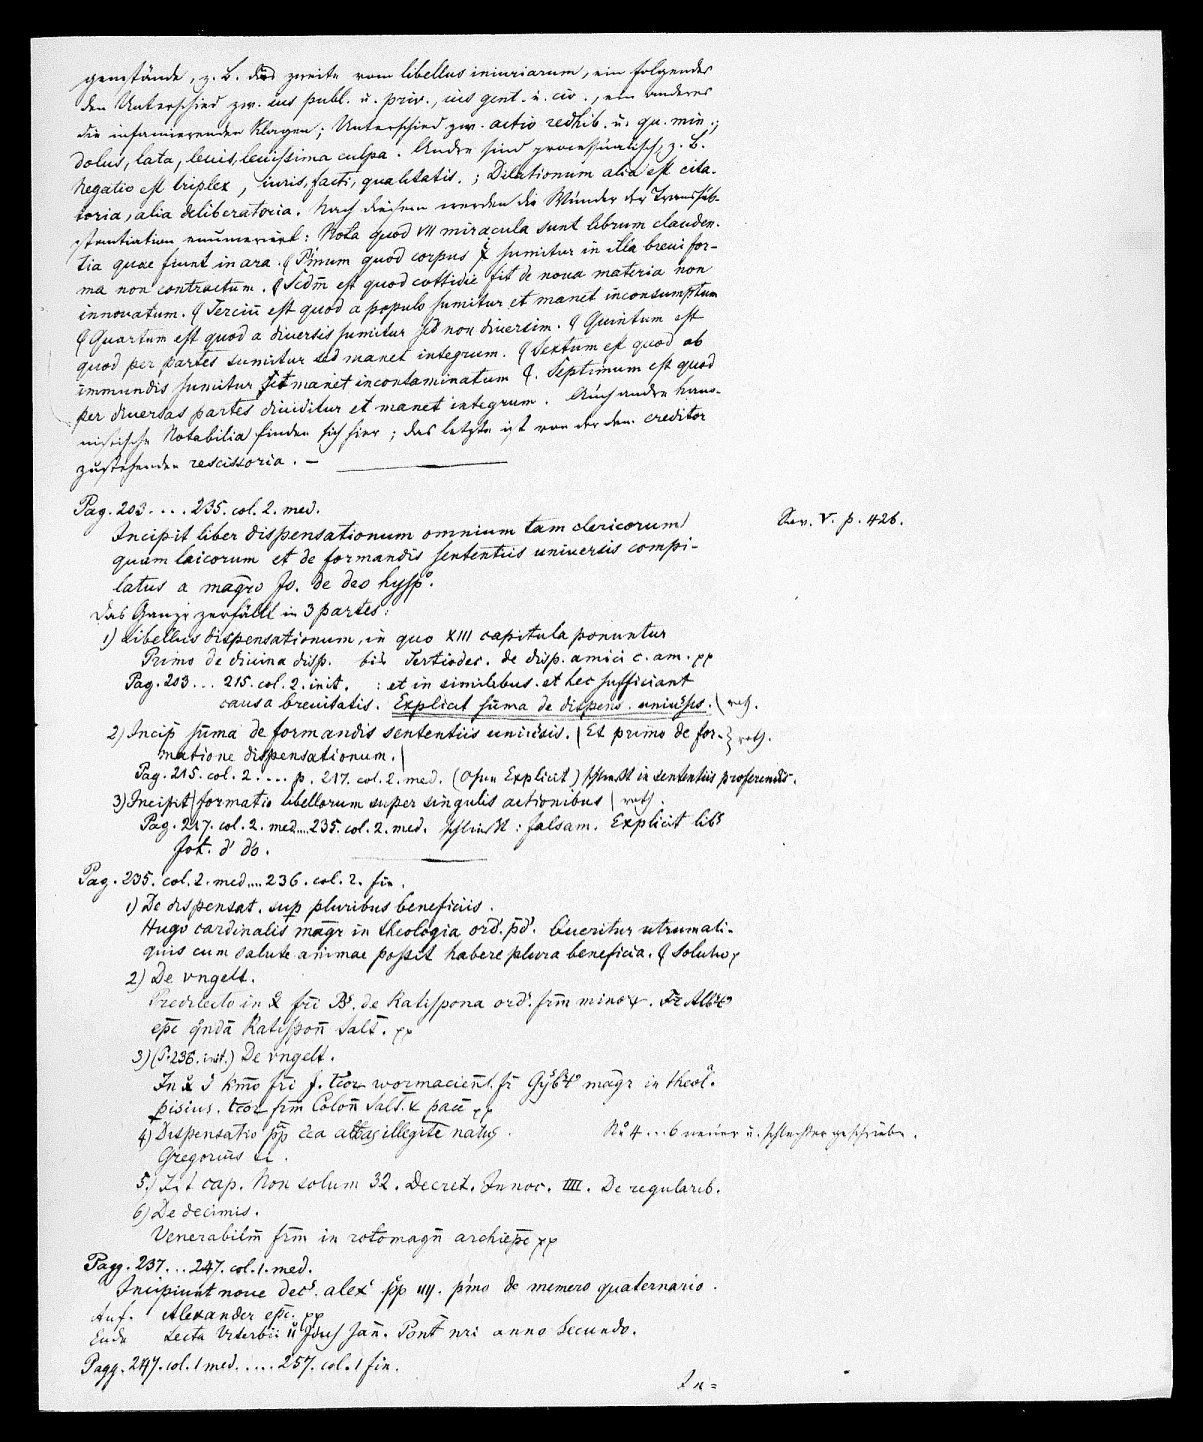 genstände, z. B. das zweite vom libellus iniuriarum, ein folgendes
den Unterschied zw. ius publ. u. priv., ius gent. u. civ., ein anderes
die infamierenden Klagen; Unterschied zw. actio redhib. u. qu. min.;
dolus, lata, levis, levissima culpa. Andre sind processualisch, z. B.
Negatio est triplex, iuris, facti, qualitatis.; Dilationum alia est cita-
toria, alia deliberatoria. Nach diesem werden die Wunder der Transsub-
stantiation enumeriert: Nota quod VII miracula sunt librum clauden-
tia quae fiunt in ara. Pimum quod corpus sumitur in illa breui for-
ma non contractum. Scdm est quod cottidie fit de noua materia non
innouatum. Terciu est quod a populo sumitur et manet inconsumptum
Quartum est quod a diuersis sumitur sed non diuersim. Quintum est
quod per partes sumitur sed manet integrum. Sextum est quod ab
immundis sumitur set manet incontaminatum. Septimum est quod
per diuersas partes diuiditur et manet integrum. Auch andre kano-
nistische Notabilia finden sich hier; das letzte ist von der dem creditor
zustehenden rescissoria. –
Pag. 203 .... 235. col. 2. med.
Sav. V. p. 426.
Incipit liber dispensationum omnium tam clericorum
quam laicorum et de formandis sententiis uniuersis compi-
latus a magro Jo. de deo hysp°.
Das Ganze zerfällt in 3 partes:
1) Libellus dispensationum, in quo XIII capitula ponuntur
Primo de diuina disp. bis Tertiodec. de disp. amici c. am. pp
Pag. 203 ... 215. col. 2. init. : et in similibus. et hec sufficiant
causa breuitatis. Explicit suma de dispens. uniuersis. (roth.
2) Incip suma de formandis sententiis uniuersis. (Et primo de for- } roth.
matione dispensationum.
Pag. 215. col. 2. .... p. 217. col. 2. med. (ohne Explicit) schliesst in sententiis proferendis.
3) Incipit formatio libellorum super singulis actionibus | roth.
Pag. 217. col. 2. med.... 235. col. 2. med. schliesst: falsam. Explicit lib
Joh. d' do.
Pag. 235. col. 2. med.... 236. col. 2. fin.
1) De dispensat. sup pluribus beneficiis.
Hugo cardinalis magr in theologia ord. pd. Queritur utrum ali-
quis cum salute animae possit habere plura beneficia. Solutio
2) De vngelt.
Predilecto in fri B. de Ratispona ord. frm minor. Fr Alb
epc qnda Ratispon salt. pp
3) (P. 236. init.) De vngelt.
magr in theol.
frm Colon salt.
4) Dispensatio illegite natus.
No 4 ... 6 neuer u. schlechter geschrieben.
Gregorius
5.) Ist cap. Non solum 32. Decret. Innoc. IIII. De regularib.
6) De decimis.
Venerabilm frm in rotomagn archiepc pp
Pagg. 237 ... 247. col. 1. med.
Incipiunt noue dec. alex pp IIII. pimo de numero quaternario.
Anf. Alexander epc. pp
Ende Lecta Viterbii II Jdus Jan. Pont nri anno Secundo.
Pagg. 247. col. 1 med. .... 257. col. 1 fin.
In=